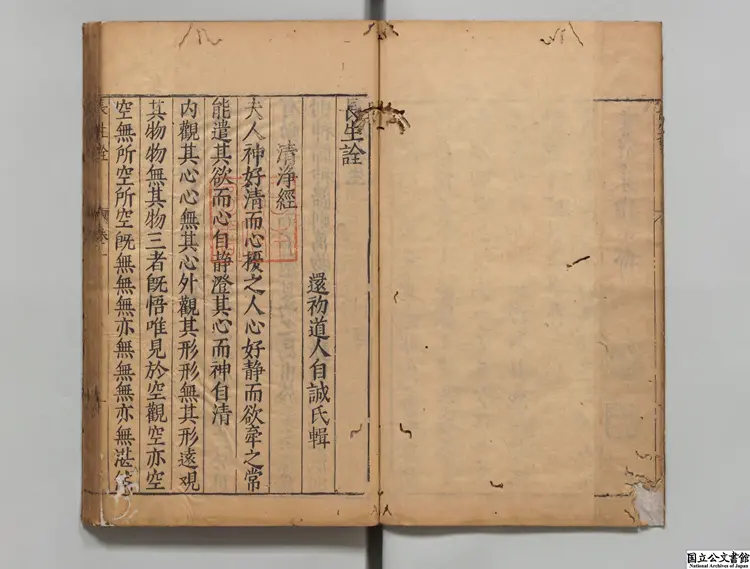 長生詮
還初道人自誠氏輯
清淨經
夫人神好清而心擾之人心好静而欲牽之常
能遣其欲而心自静澄其心而神自清
内觀其心心無其心外觀其形形無其形遠觀
其物物無其物三者既悟唯見於空觀空亦空
空無所空所空既無無無亦無無無亦無湛
長生詮
卷一
国立公文書館
National Archives of Japan